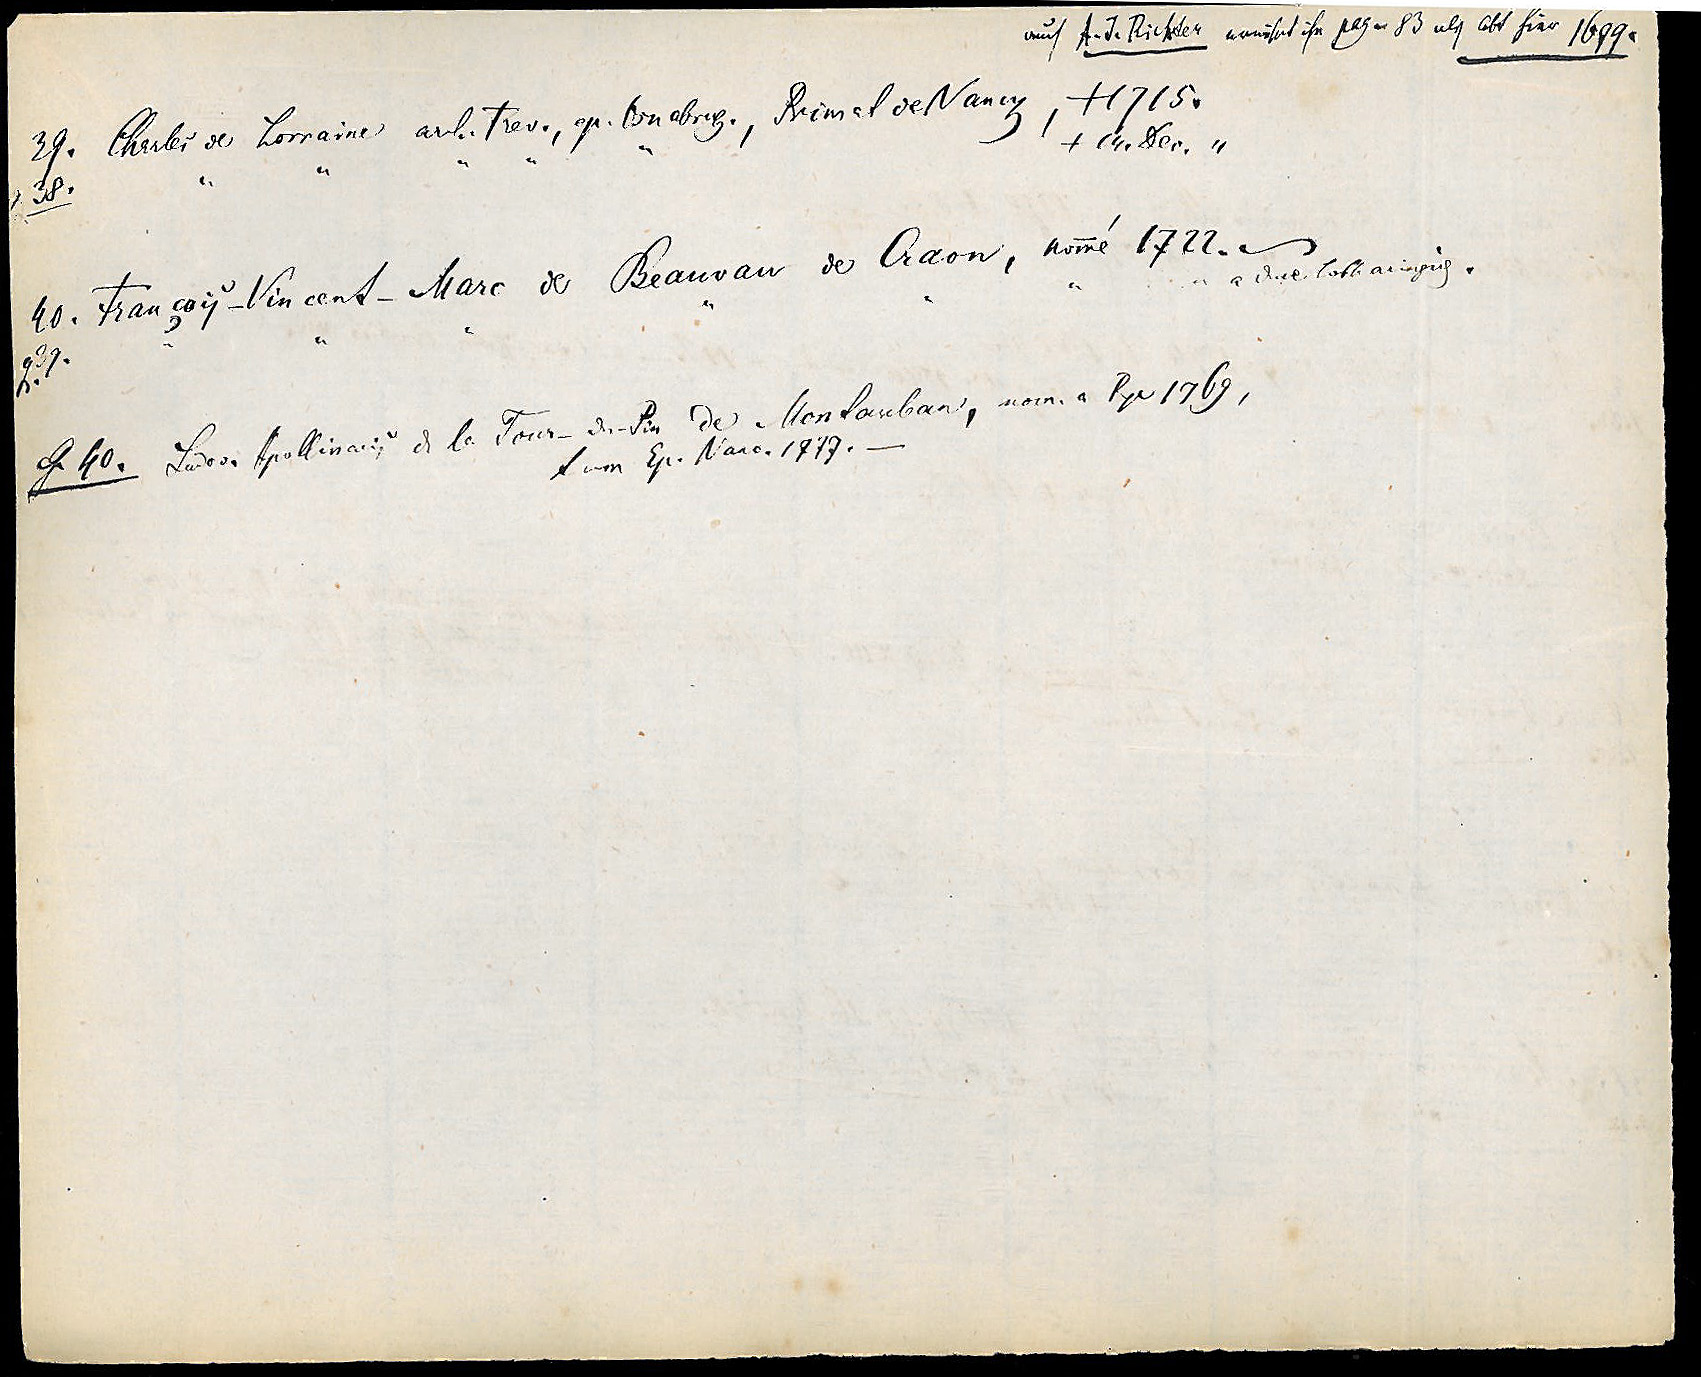 auch A. J. Richter erwähnt ihn pag. 83 als Abt hier 1699.
39. Charles de Lorraine arch. Trev., ep. Osnabrug., Primat de Nancy, +1715.
38. " " " " " + 4. Dec. "
40. François-Vincent-Marc de Beauvau de Craon, nom̅é 1722.
39. " " " " " " " a duce Lotharingię.
G 40. Ludov. Apollinaris de la Tour-du-Pin de Montauban, nom. a Rge 1769,
tum Ep. Nanc. 1777. —